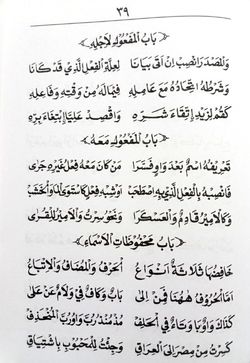 ٣٩
﴿ بَابُ الْمَفْعُولِ لِأَجْلِهِ ﴾
وَالْمَصْدَرَ انْصِبْ إِنْ أَتَى بَيَانَا لِعِلَّةِ الْفِعْلِ الَّذِي قَدْ كَانَا
وَشَرْطُهُ اتِّحَادُهُ مَعَ عَامِلِهِ فِيمَا لَهُ مِنْ وَقْتِهِ وَفَاعِلِهِ
كَقُمْ لِزَيْدٍ اِتِّقَاءَ شَرِّهِ وَاقْصِدْ عَلِيًّا اِبْتِغَاءَ بِرِّهِ
﴿ بَابُ الْمَفْعُولِ مَعَهُ ﴾
تَعْرِيفُهُ اسْمٌ بَعْدَ وَاوٍ فَسَّرَا مَنْ كَانَ مَعَهُ فِعْلُ غَيْرِهِ جَرَى
فَانْصِبْهُ بِالْفِعْلِ الَّذِي بِهِ اصْطَحَبْ أَوْ شِبْهِ فِعْلٍ كَاسْتَوَى الْمَا وَالْخَشَبْ
وَكَالْأَمِيرُ قَادِمٌ وَالْعَسْكَرَا وَنَحْوُ سِرْتُ وَالْأَمِيرَ لِلْقُرَى
﴿ بَابُ مَخْفُوضَاتِ الْأَسْمَاءِ ﴾
خَافِضُهَا ثَلَاثَةٌ أَنْوَاعُ الْحَرْفُ وَالْمُضَافُ وَالْإِتْبَاعُ
أَمَّا الْحُرُوفُ هٰهُنَا فَمِنْ إِلَى بَاءٌ وَكَافٌ فِي وَلَامٌ عَنْ عَلَى
كَذَاكَ وَاوٌ بَا وَتَاءٌ فِي الْحَلِفْ مُذْ مُنْذُ رُبَّ وَاوُ رُبَّ الْمُنْحَذِفْ
كَسِرْتُ مِنْ مِصْرَ إِلَى الْعِرَاقِ وَجِئْتُ لِلْمَحْبُوبِ بِاشْتِيَاقِ